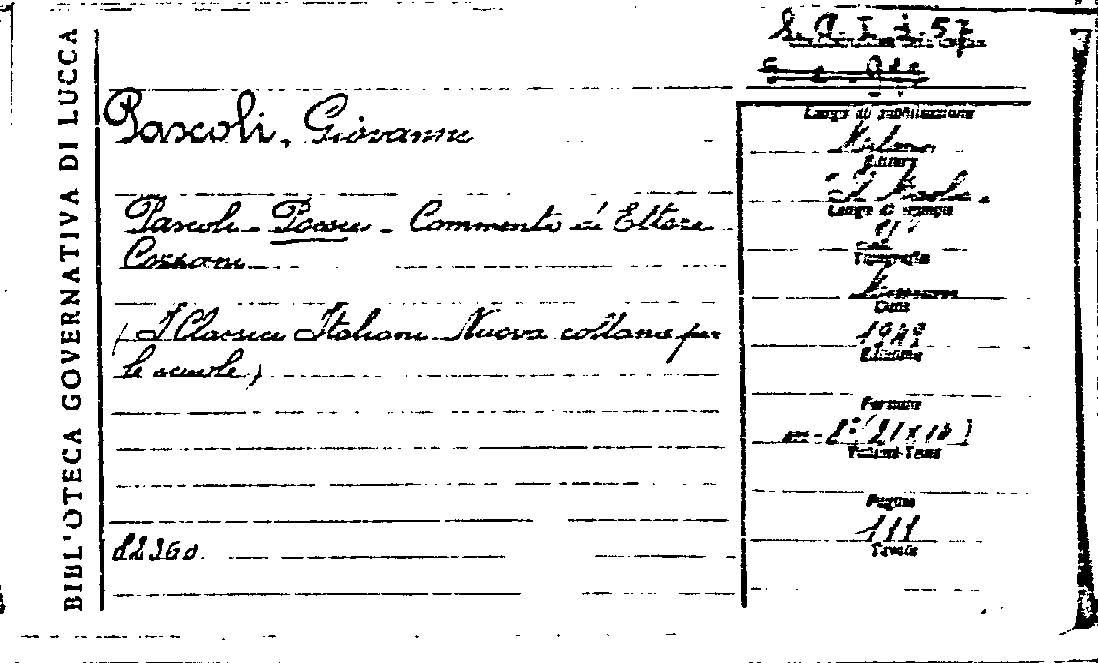 BIBLIOTECA GOVERNATIVA DI LUCCA
S. A. I. 57
Pascoli, Giovanni
Pascoli - Poesie - Commento di Ettore
Cozzani
(I Classici Italiani. Nuova collana per
le scuole)
82360
Luogo di pubblicazione
Milano
Editore
Luogo di stampa
Tipografia
Data
Edizione
Formato
in-8° (21x14)
Volumi-Tomi
Pagine
111
Tavole